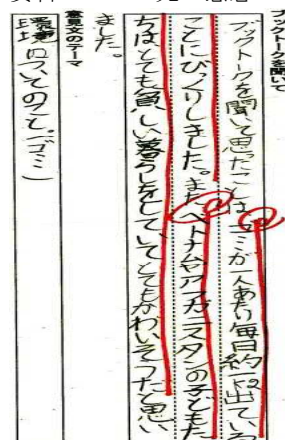 ブックトークを聞いて
ブックトークを聞いて思ったことは、ゴミが一人あたり毎日約
出ている
ことにびっくりしました。また、ベトナムやアフガニスタンの子どもた
ちはとても貧しい暮らしをしていてとてもかわいそうだと思い
ました。
意見文のテーマ
環境についてのこと。(ゴミ)